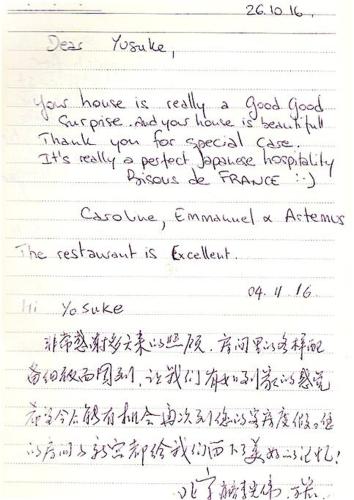 26.10.16.
Dear Yusuke,
Your house is really a Good Good
Surprise. And your house is beautifull
Thank you for special case.
It's really a perfect Japanese hospitality
Bisous de FRANCE :-)
Caroline, Emmanuel & Artemus
The restaurant is Excellent.
04.11.16.
Hi Yosuke
非常感谢多天来的照顾，房间里的各样配
备细致而周到，让我们有如到家的感觉
希望今后能有机会再次到您的家房度假。您
的房间与款客都给我们留下了美好的记忆！
北京